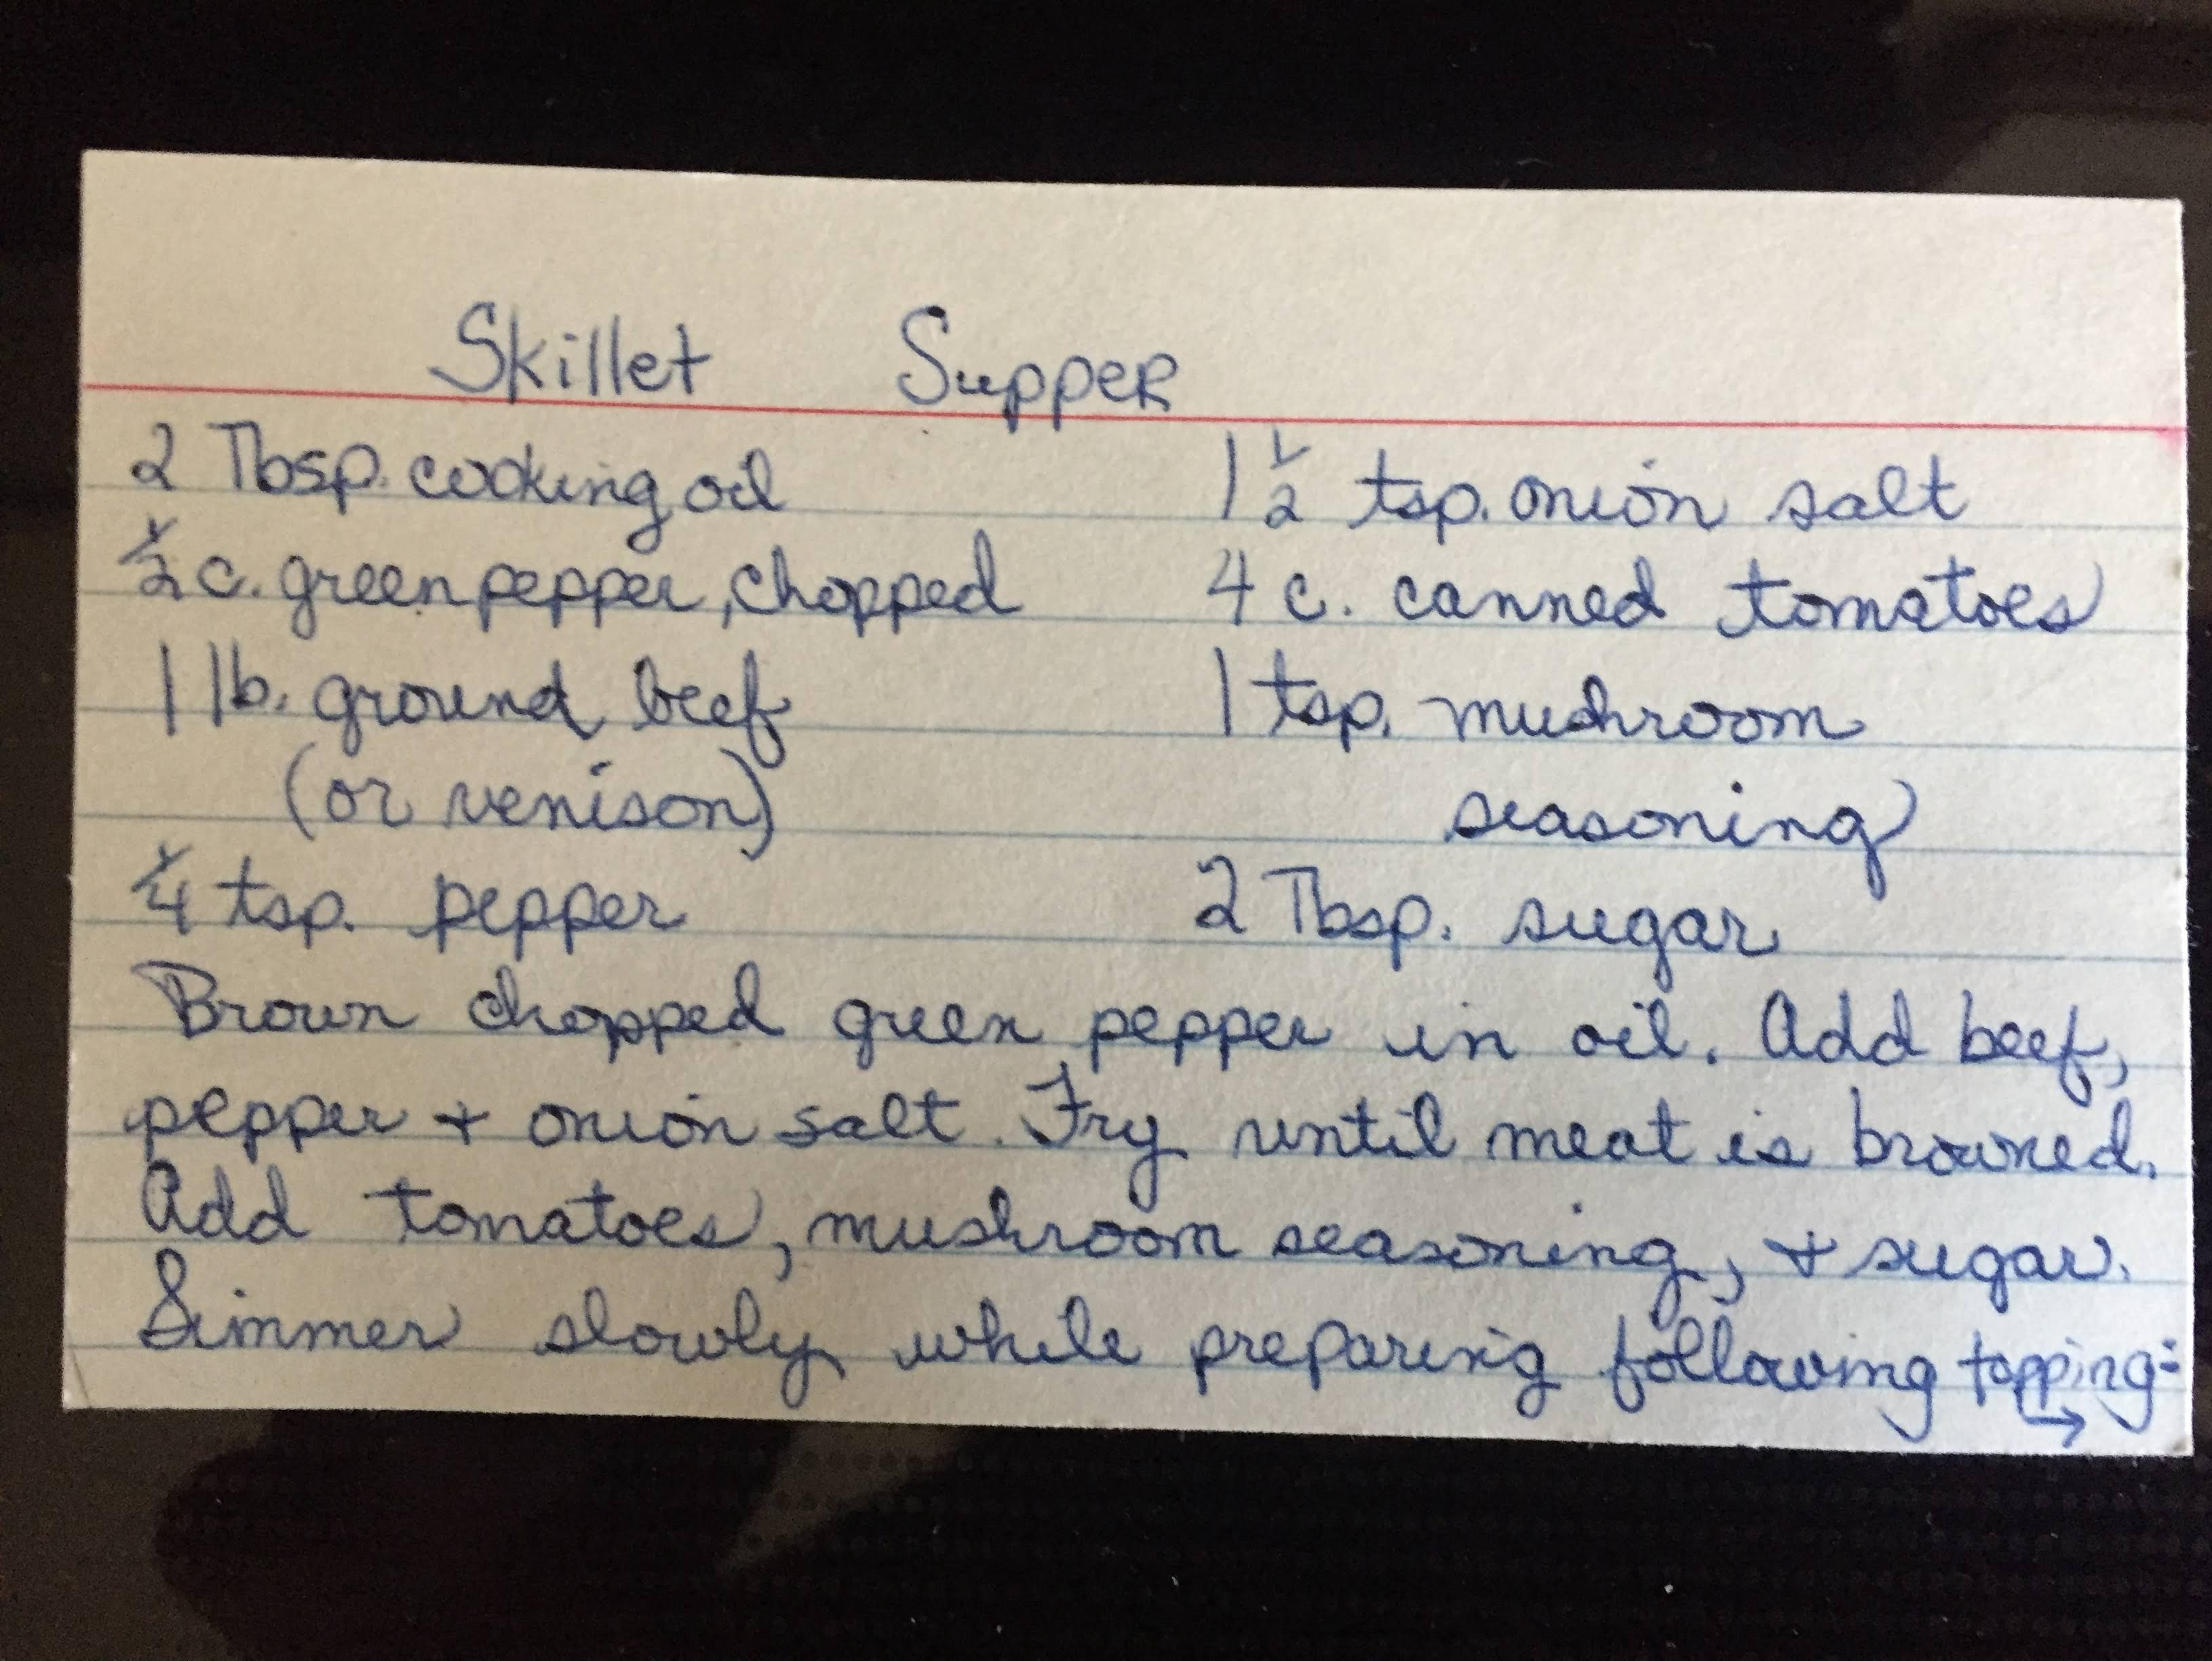 Skillet Supper
2 Tbsp. cooking oil
½ c. green pepper, chopped
1 lb. ground beef
(or venison)
¼ tsp. pepper
1 ½ tsp. onion salt
4 c. canned tomatoes
1 tsp. mushroom
seasoning
2 Tbsp. sugar
Brown chopped green pepper in oil. Add beef,
pepper + onion salt. Fry until meat is browned.
Add tomatoes, mushroom seasoning, + sugar.
Simmer slowly while preparing following topping:
→